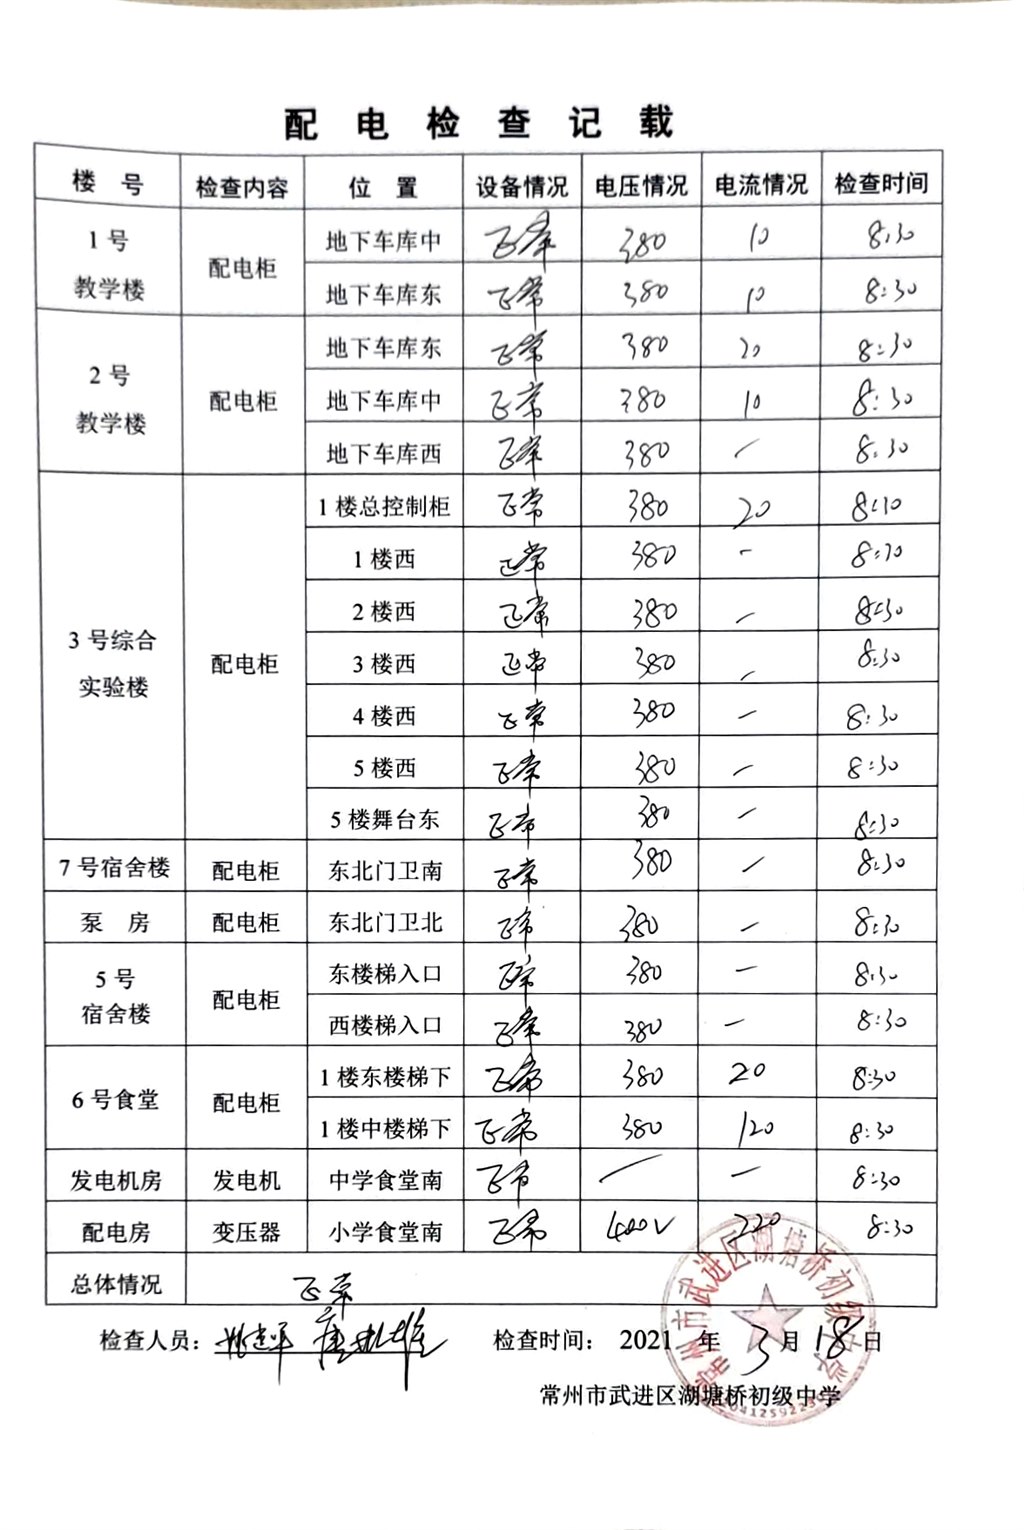 配电检查记载
楼 号 检查内容 位 置 设备情况 电压情况 电流情况 检查时间
1号 教学楼 配电柜 地下车库中 正常 380 10 8:30
地下车库东 正常 380 10 8:30
2号 教学楼 配电柜 地下车库东 正常 380 20 8:30
地下车库中 正常 380 10 8:30
地下车库西 正常 380 — 8:30
3号综合 实验楼 配电柜 1楼总控制柜 正常 380 20 8:30
1楼西 正常 380 — 8:30
2楼西 正常 380 — 8:30
3楼西 正常 380 — 8:30
4楼西 正常 380 — 8:30
5楼西 正常 380 — 8:30
5楼舞台东 正常 380 — 8:30
7号宿舍楼 配电柜 东北门卫南 正常 380 — 8:30
泵 房 配电柜 东北门卫北 正常 380 — 8:30
5号 宿舍楼 配电柜 东楼梯入口 正常 380 — 8:30
西楼梯入口 正常 380 — 8:30
6号食堂 配电柜 1楼东楼梯下 正常 380 20 8:30
1楼中楼梯下 正常 380 120 8:30
发电机房 发电机 中学食堂南 正常 — — 8:30
配电房 变压器 小学食堂南 正常 400V 220 8:30
总体情况 正常
检查人员： 检查时间： 2021 年 3 月 18 日
常州市武进区湖塘桥初级中学
常州市武进区湖塘桥初级中学